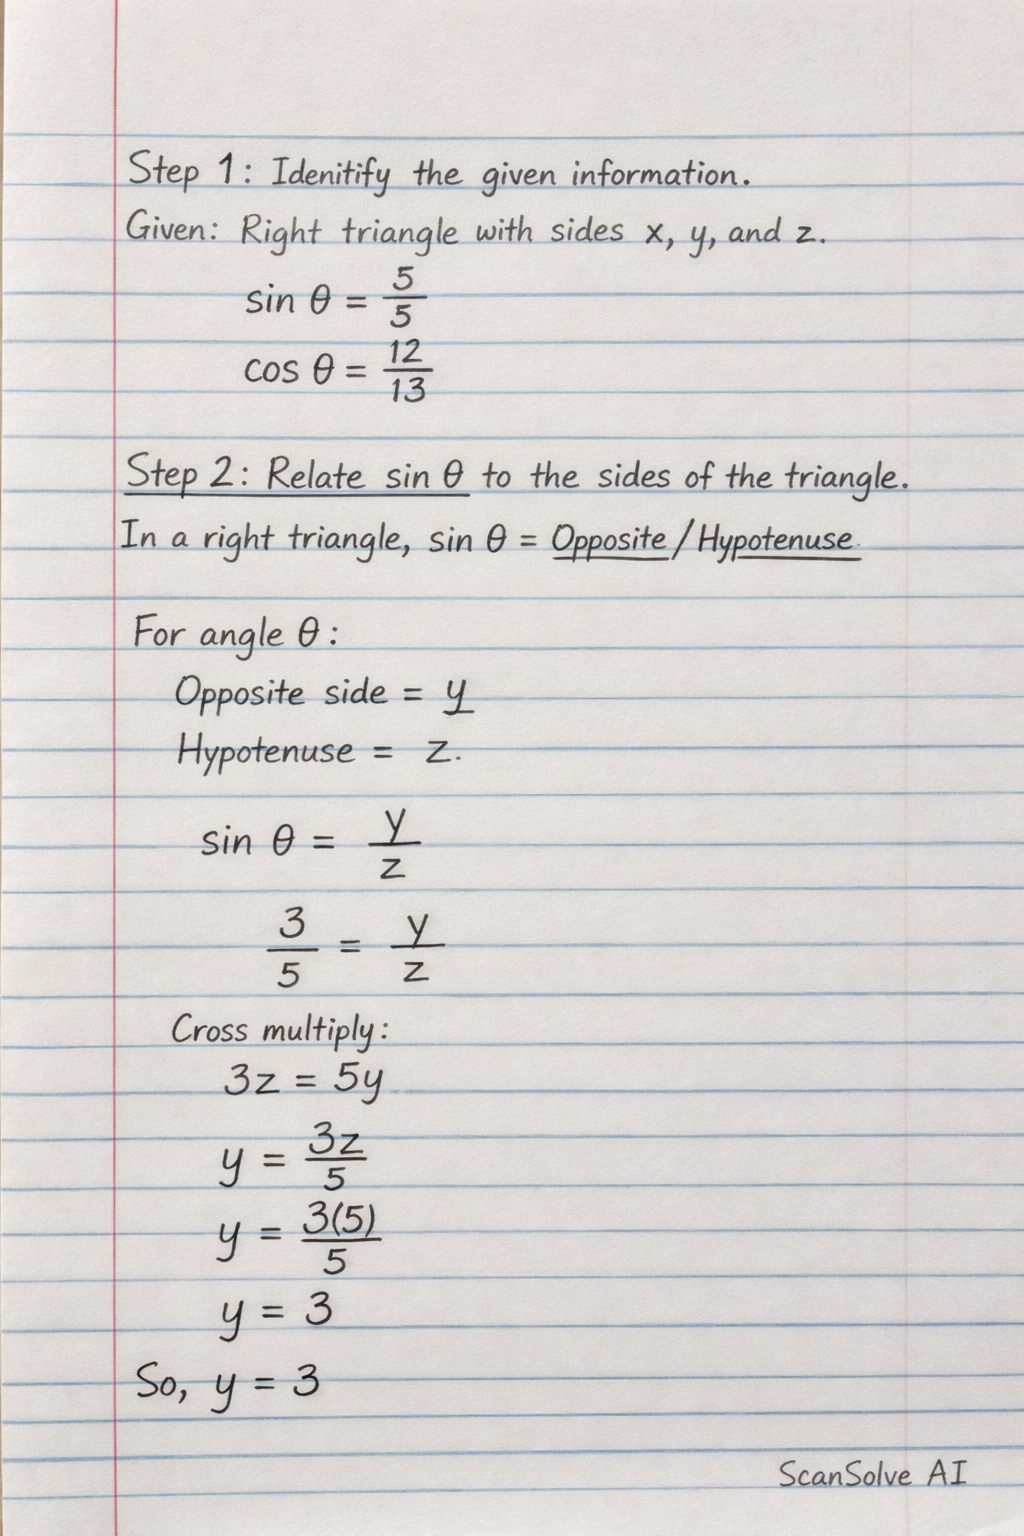 Step 1: Idenitify the given information.
Given: Right triangle with sides x, y, and z.
sin θ = 5/5
cos θ = 12/13
Step 2: Relate sin θ to the sides of the triangle.
In a right triangle, sin θ = Opposite/Hypotenuse.
For angle θ:
Opposite side = y
Hypotenuse = z.
sin θ = y/z
3/5 = y/z
Cross multiply:
3z = 5y
y = 3z/5
y = 3(5)/5
y = 3
So, y = 3
ScanSolve AI